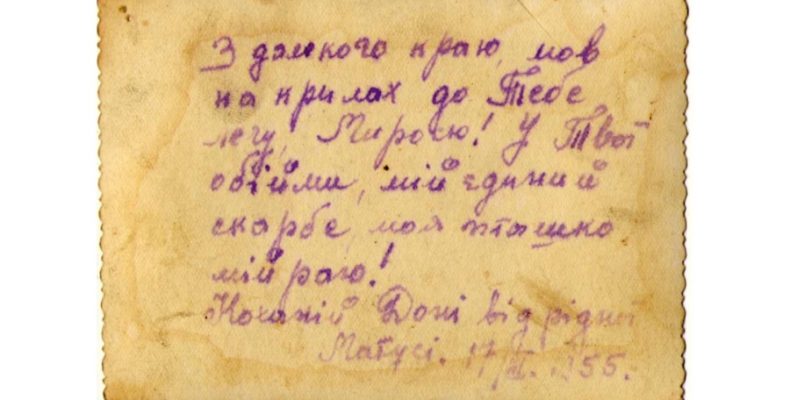 З далекого краю, мов
на крилах до Тебе
легу, Миросю! У Твої
обійми, мій єдиний
скарбе, моя пташко
мій раю!
Коханій Доні від рідної
Матусі. 17/ 1955.